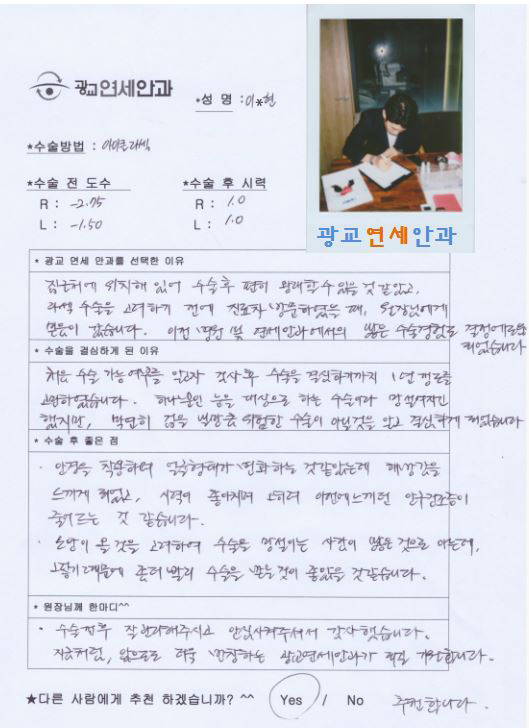 광교연세안과
*성 명 : 이*현
*수술방법 : 아이큐라섹
*수술 전 도수 *수술 후 시력
R : -2.75 R : 1.0
L : -1.50 L : 1.0
광교연세안과
* 광교 연세 안과를 선택한 이유
집근처에 위치해 있어 수술후 편히 왕래할수 있을것 같았고,
라섹 수술을 고려하기 전에 진료차 방문하였을 때, 원장님에게
믿음이 갔습니다. 이전 병원 및 연세안과에서의 많은 수술경험도 결정에 도움
되었습니다
* 수술을 결심하게 된 이유
처음 수술 가능여부를 알고자 검사후 수술을 결심하기까지 1년정도를
고민하였습니다. 하나뿐인 눈을 대상으로 하는 수술이라 망설여지긴
했지만, 막연히 겁을 낼만큼 위험한 수술이 아닐것을 알고 결심하게 되었습니다
* 수술 후 좋은 점
· 안경을 착용하며 얼굴형태가 변화하는 것같았는데 해방감을
느끼게 되었고, 시력이 좋아지며 오히려 이전에 느끼던 안구건조증이
줄어드는 것 같습니다.
· 노안이 올 것을 고려하여 수술을 망설이는 사람이 많은 것으로 아는데,
그렇기 때문에 좀더 빨리 수술을 받는것이 좋았을 것같습니다.
* 원장님께 한마디^^
· 수술전후 잘 관리해주시고 안심시켜주셔서 감사했습니다.
지금처럼, 앞으로도 더욱 번창하는 광교연세안과가 되길 기원합니다.
★다른 사람에게 추천 하겠습니까? ^^ Yes / No 추천합니다.